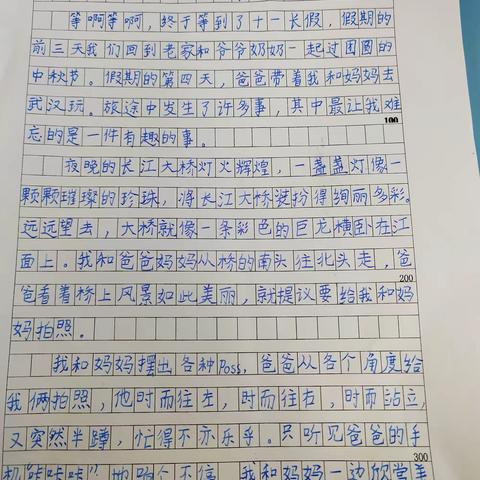 等啊等啊，终于等到了十一长假，假期的
前三天我们回到老家和爷爷奶奶一起过团圆的
中秋节。假期的第四天，爸爸带着我和妈妈去
武汉玩。旅途中发生了许多事，其中最让我难
100
忘的是一件有趣的事。
夜晚的长江大桥灯火辉煌，一盏盏灯像一
颗颗璀璨的珍珠，将长江大桥装扮得绚丽多彩。
远远望去，大桥就像一条彩色的巨龙横卧在江
面上。我和爸爸妈妈从桥的南头往北头走，爸
200
爸看着桥上风景如此美丽，就提议要给我和妈
妈拍照。
我和妈妈摆出各种poss，爸爸从各个角度给
我俩拍照，他时而往左，时而往右，时而站立，
又突然半蹲，忙得不亦乐乎。只听见爸爸的手
300
机“咔咔咔”地响个不停，我和妈妈一边欣赏美